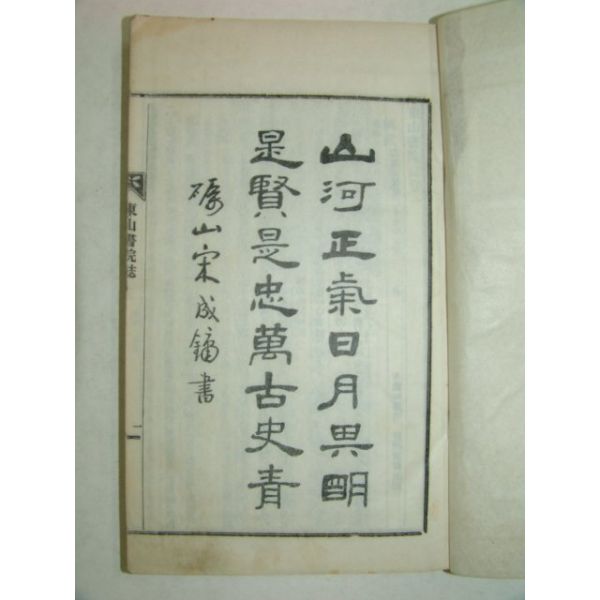 山河正氣日月明
是賢是忠萬古史青
礪山宋成鏞書
東山書院誌
二